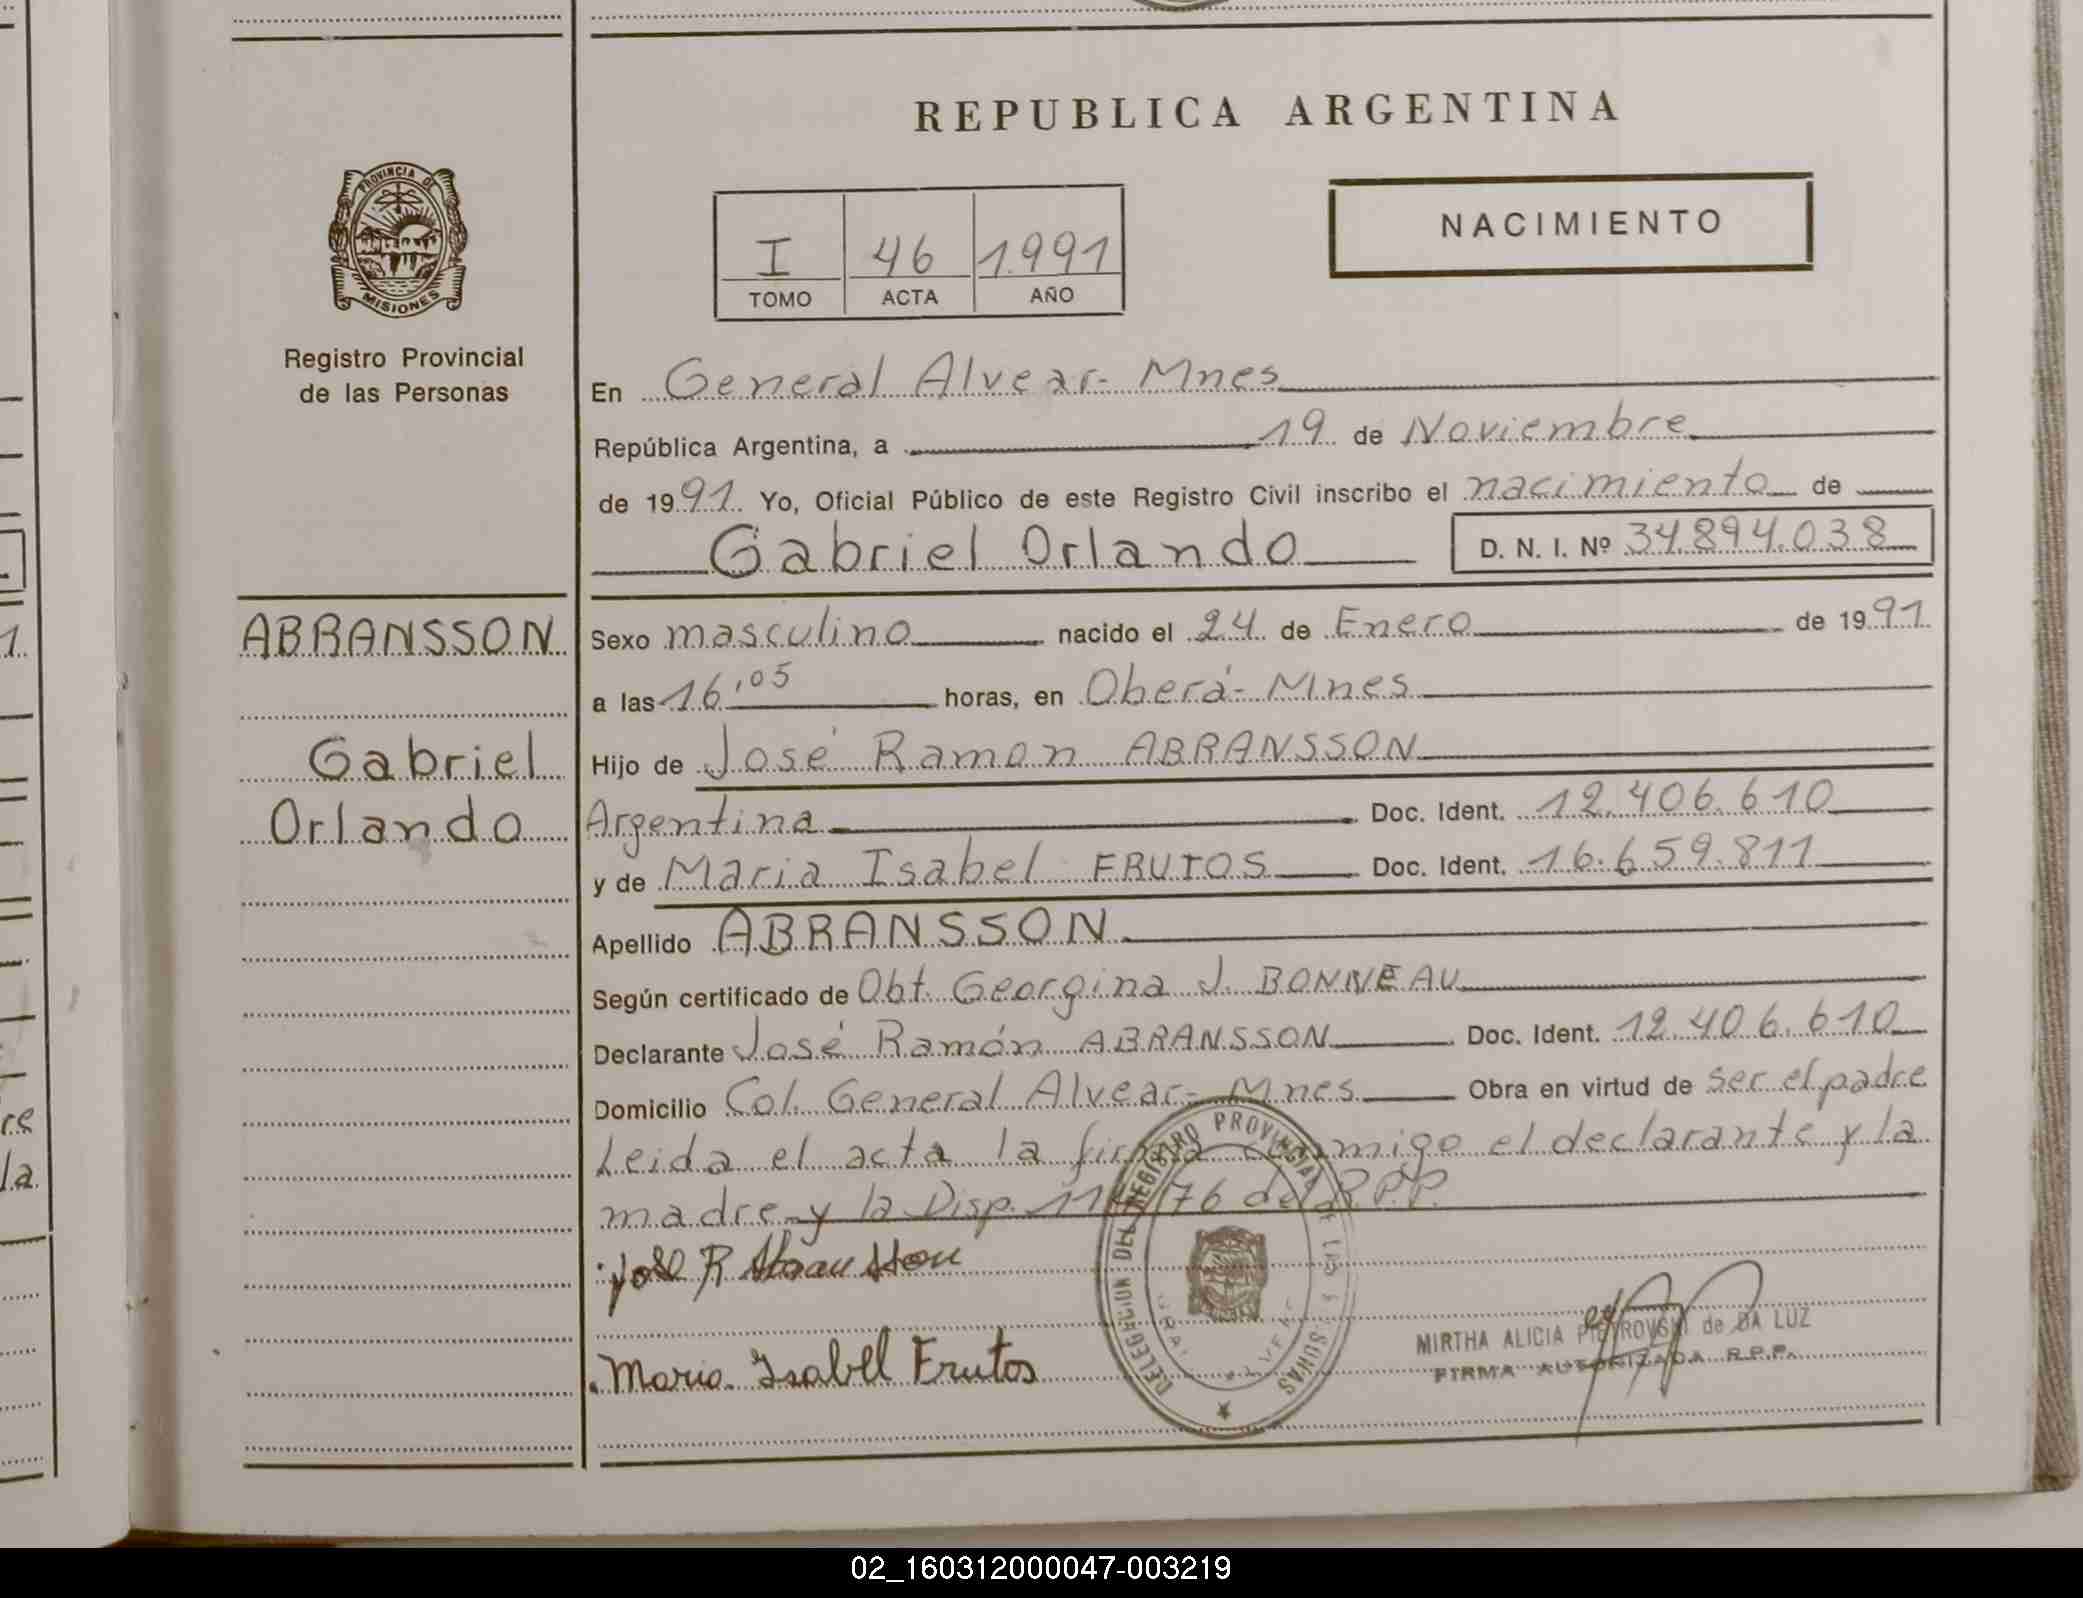 REPUBLICA ARGENTINA
PROVINCIA DE MISIONES
I 46 1991
TOMO ACTA AÑO
NACIMIENTO
Registro Provincial
de las Personas
En General Alvear - Mnes
República Argentina, a 19 de Noviembre
de 1991 Yo, Oficial Público de este Registro Civil inscribo el nacimiento de
Gabriel Orlando D. N. I. Nº 34.894.038
ABRANSSON
Gabriel
Orlando
Sexo masculino nacido el 24 de Enero de 1991
a las 16,05 horas, en Oberá - Mnes
Hijo de José Ramon ABRANSSON
Argentina Doc. Ident. 12.406.610
y de Maria Isabel FRUTOS Doc. Ident. 16.659.811
Apellido ABRANSSON
Según certificado de Obt. Georgina J. BONNEAU
Declarante José Ramón ABRANSSON Doc. Ident. 12.406.610
Domicilio Col. General Alvear - Mnes Obra en virtud de ser el padre
Leida el acta la firma conmigo el declarante y la
madre y la Disp. 76 del R.P.P.
Jose R Abransson
Maria Isabel Frutos
DELEGACION DEL REGISTRO PROVINCIAL DE LAS
MIRTHA ALICIA PIETROVSKI de DA LUZ
FIRMA AUTORIZADA R.P.P.
re
la
02_160312000047-003219